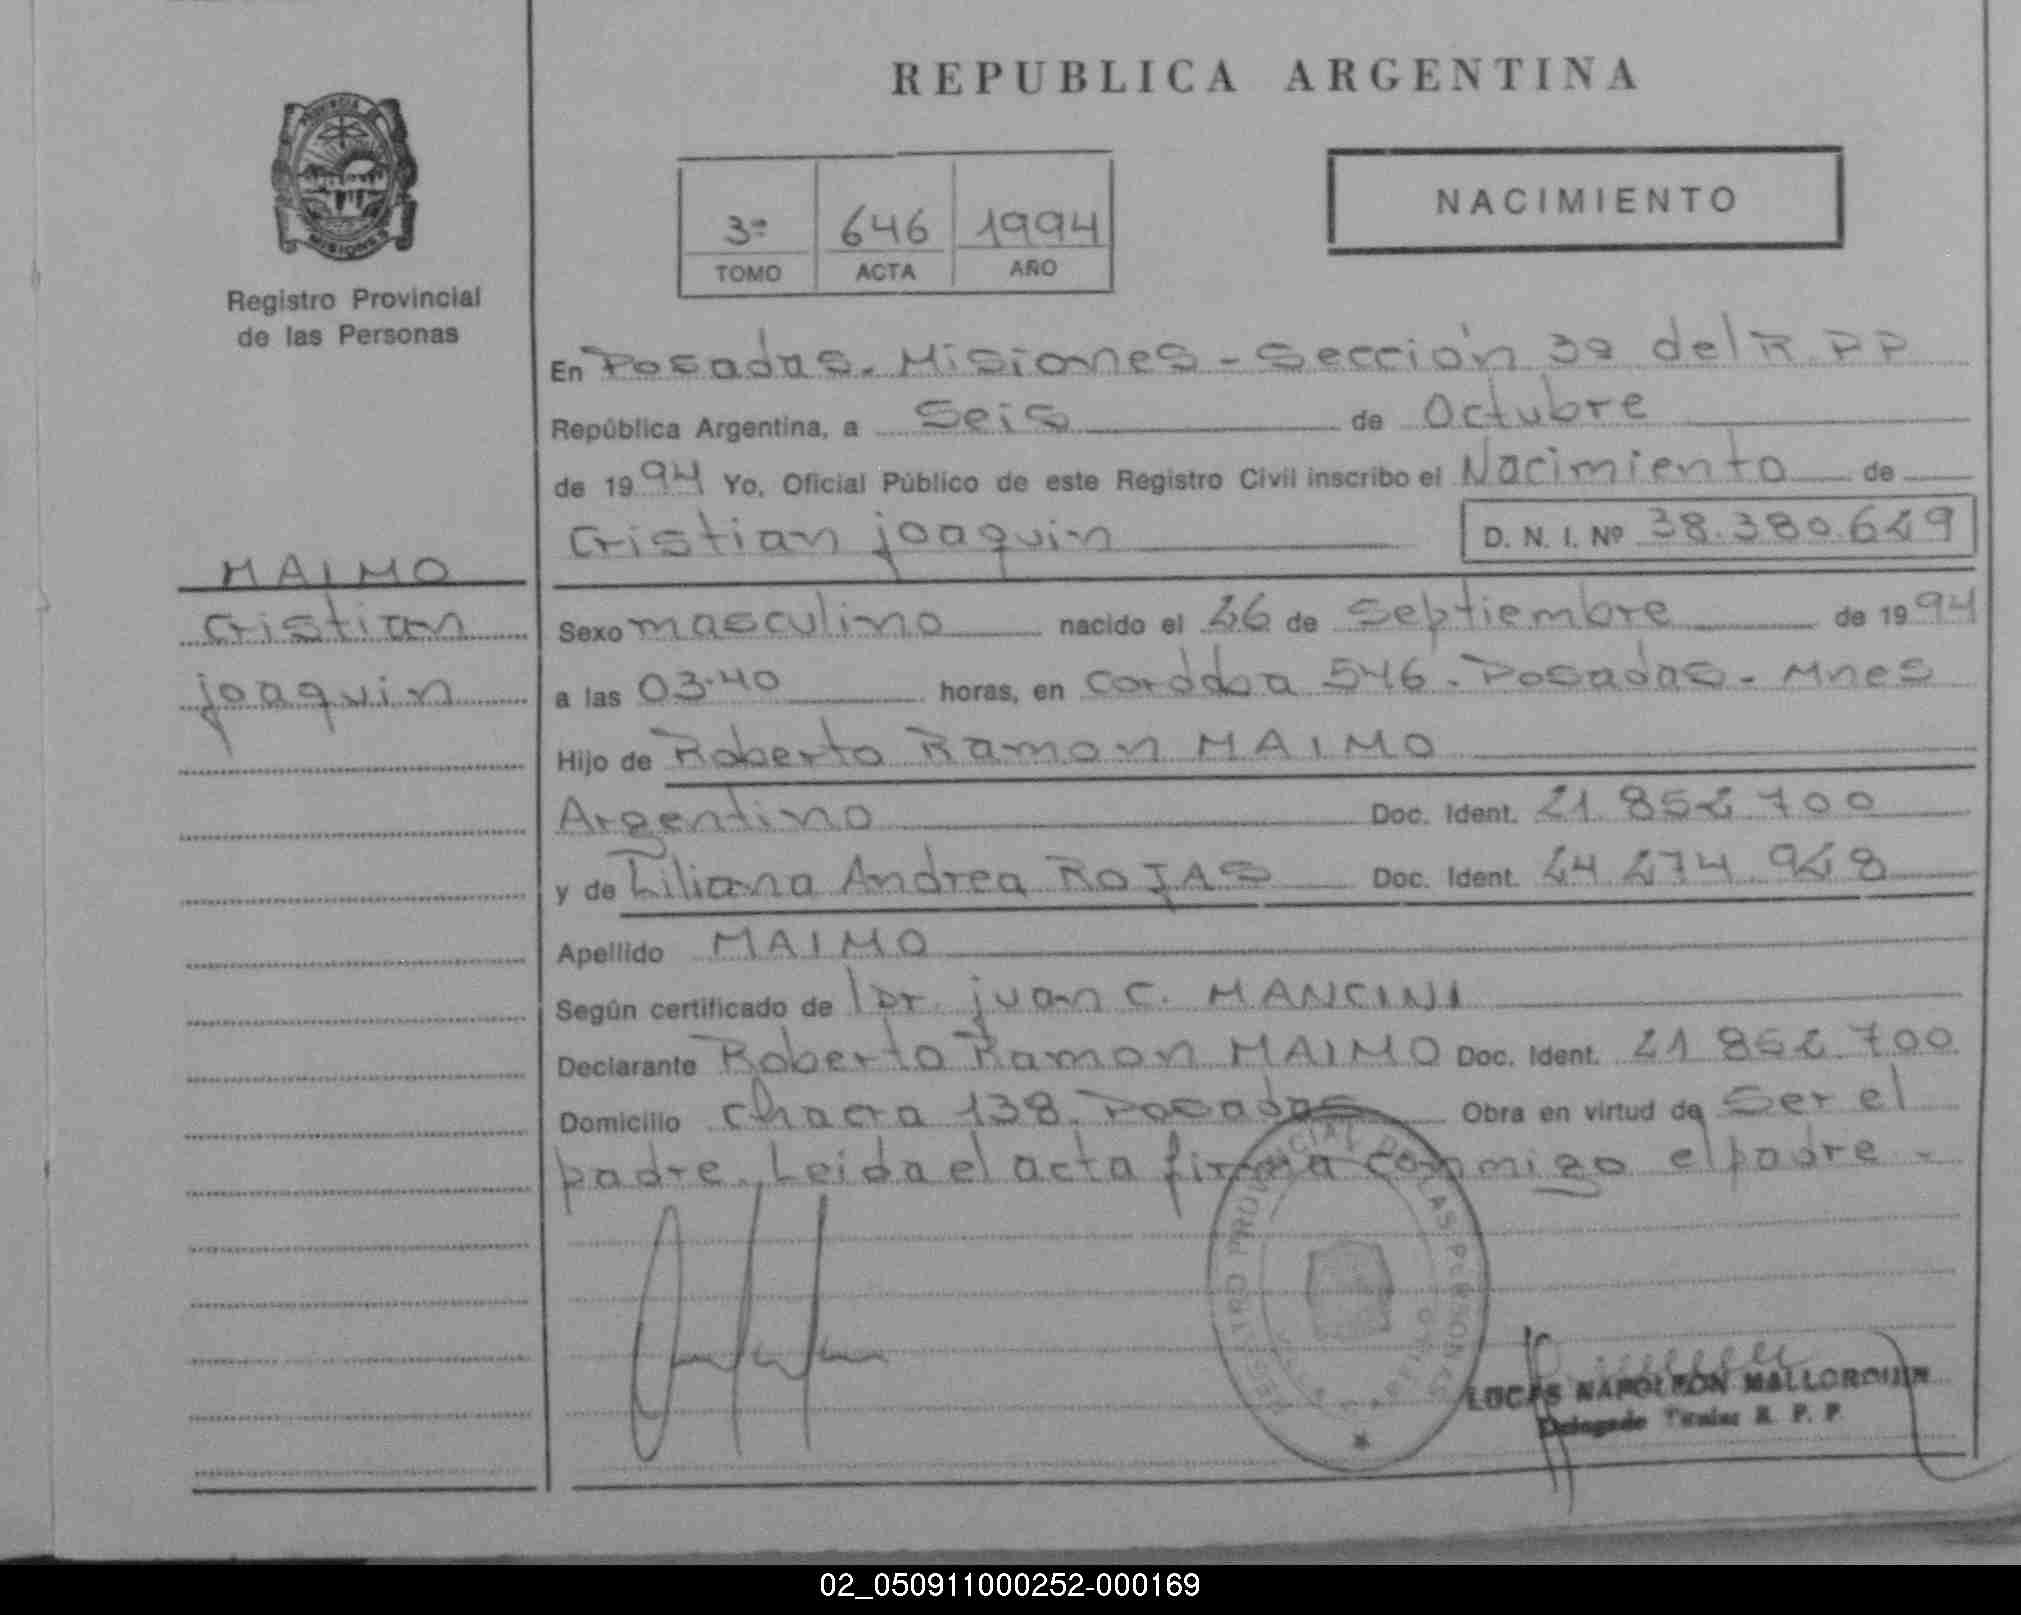 REPUBLICA ARGENTINA
PROVINCIA
MISIONES
Registro Provincial
de las Personas
3ª 646 1994
TOMO ACTA AÑO
NACIMIENTO
En Posadas. Misiones - Sección 3ª del R PP
República Argentina, a Seis de Octubre
de 1994 Yo, Oficial Público de este Registro Civil inscribo el Nacimiento de
Cristian joaquin D. N. I. Nº 38.380.629
MAIMO
Cristian
joaquin
Sexo masculino nacido el 26 de Septiembre de 1994
a las 03.40 horas, en Cordoba 546. Posadas - Mnes
Hijo de Roberto Ramon MAIMO
Argentino Doc. Ident. 21.852.700
y de Liliana Andrea ROJAS Doc. Ident. 24 274.928
Apellido MAIMO
Según certificado de Dr. juan C. MANCINI
Declarante Roberto Ramon MAIMO Doc. Ident. 21 852.700
Domicilio chacra 138. Posadas Obra en virtud de Ser el
padre. Leida el acta firma conmigo el padre -
REGISTRO PROVINCIAL DE LAS PERSONAS
LUCAS NAPOLEON MALLORQUIN
Delegado Titular R. P. P.
02_050911000252-000169